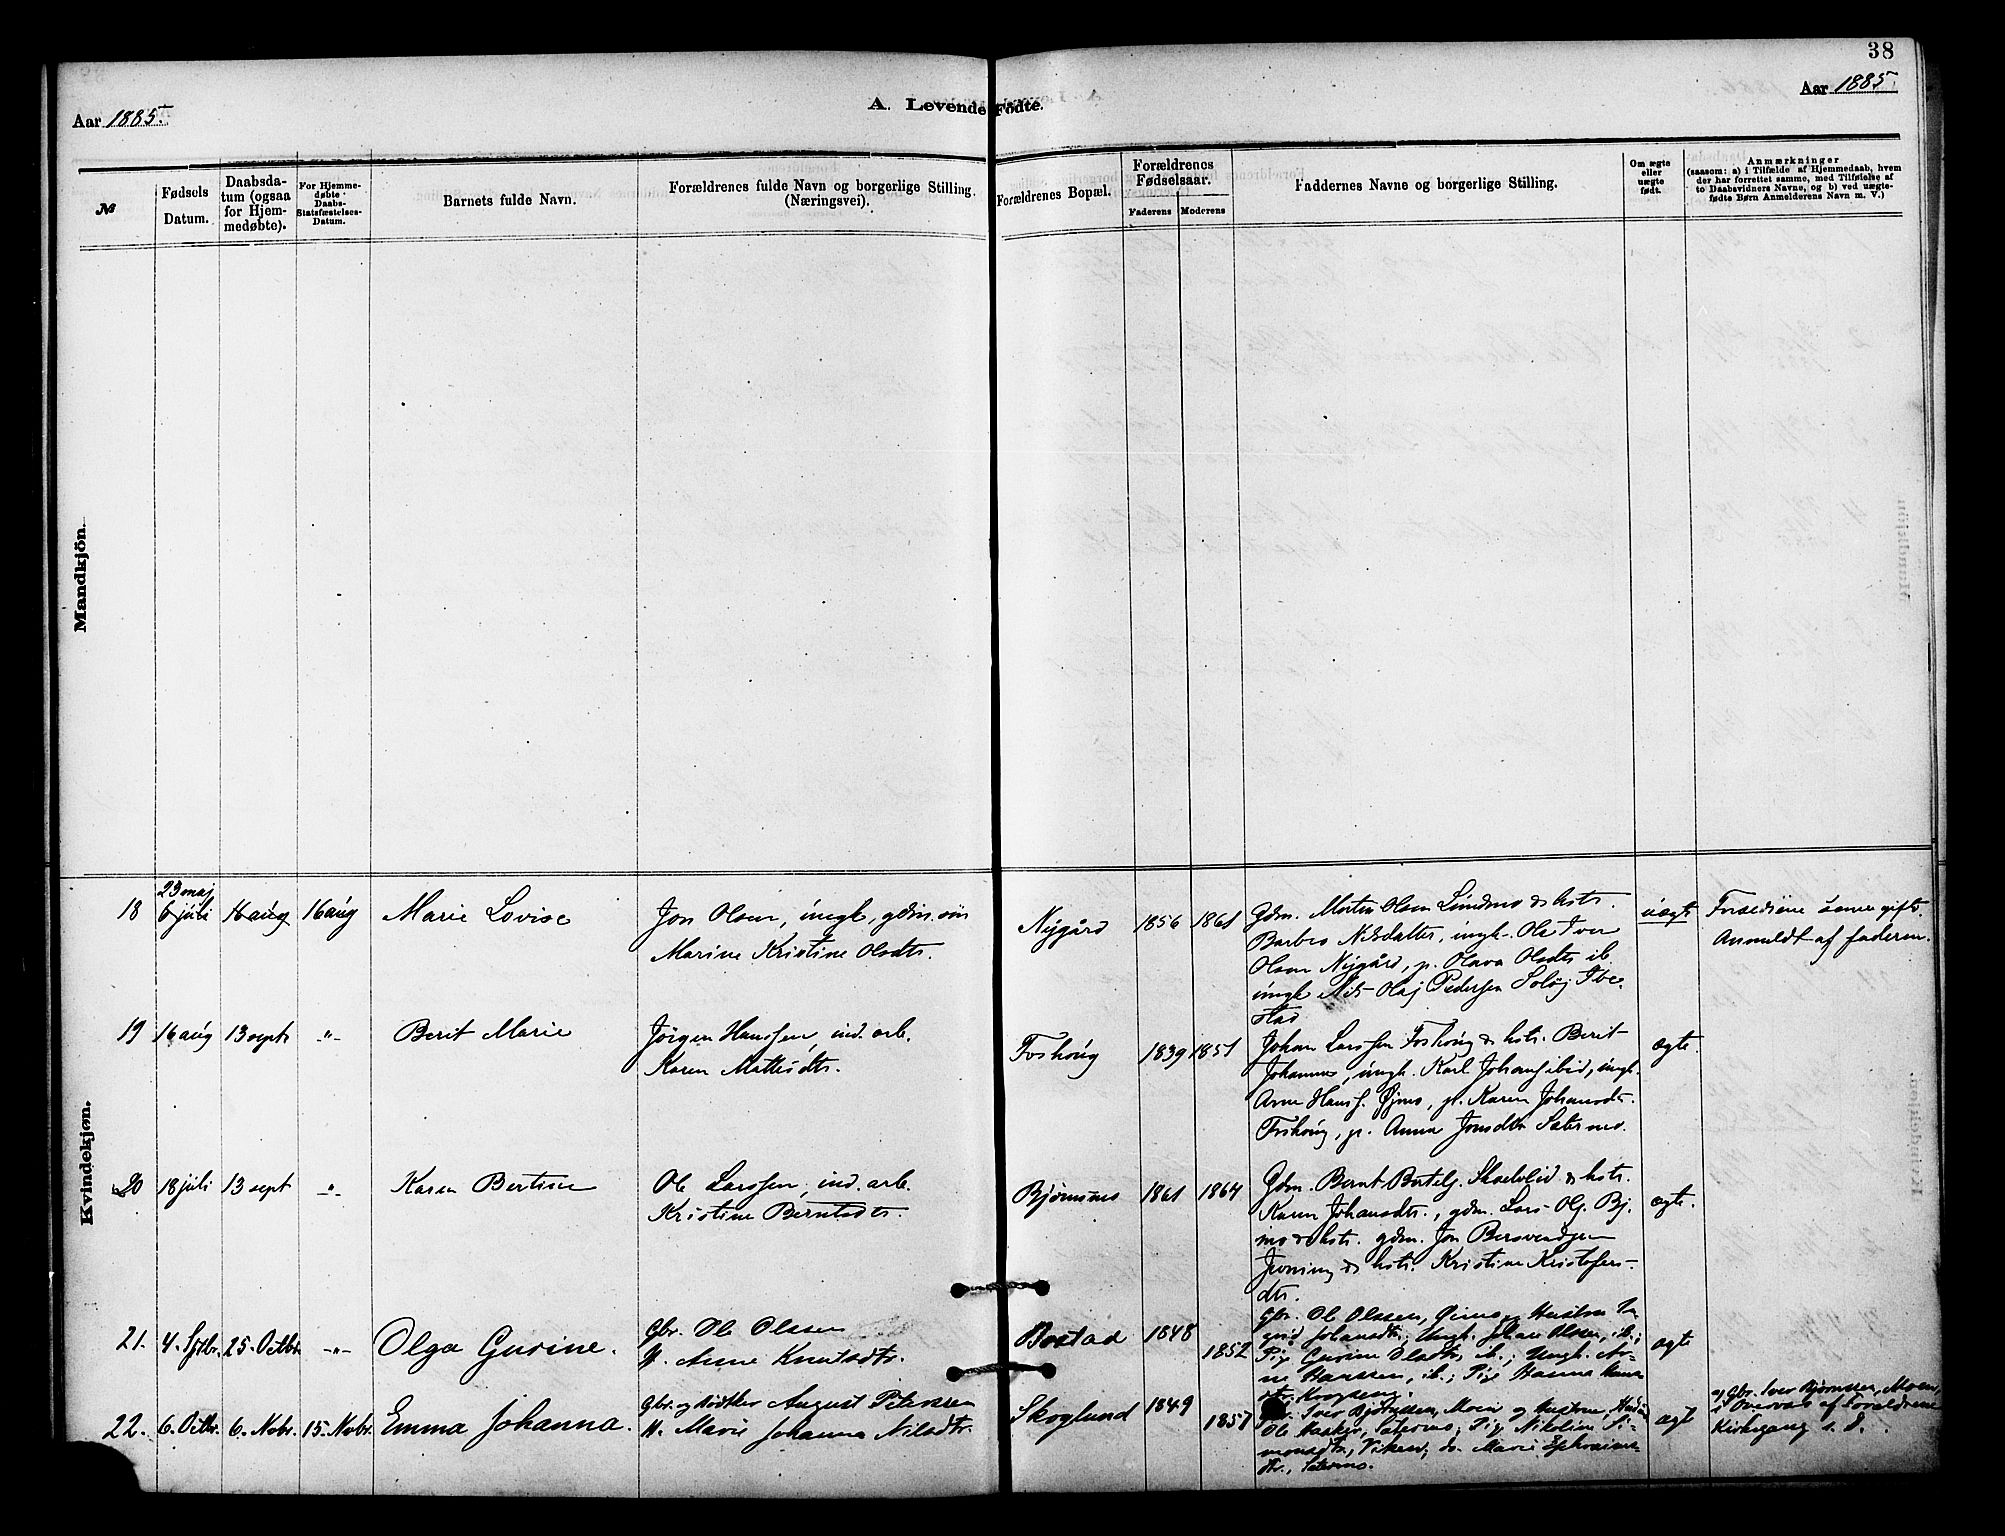 38
Aar 1885.
A. Levende Fødte.
Aar 1885.
№
Fødsels Datum.
Daabsdatum (ogsaa for Hjemmedøbte).
For Hjemmedøbte Daabs-Statsfæstelses-Datum.
Barnets fulde Navn.
Forældrenes fulde Navn og borgerlige Stilling. (Næringsvei).
Forældrenes Bopæl.
Forældrenes Fødselsaar.
Faderens
Moderens
Faddernes Navne og borgerlige Stilling.
Om ægte eller uægte født.
Anmærkninger
(saasom: a) i Tilfælde af Hjemmedaab, hvem
der har forrettet samme, med Tilføielse af
to Daabsvidners Navne, og b) ved uægte-
fødte Børn Anmelderens Navn m. V.)
Mandkjön.
Kvindekjøn.
18
23 maj
6 juli
16 aug
16 aug
Marie Lovise
Jon Olsen, ungk., gdm. søn
Marine Kristine Olsdtr.
Nygård
1856
1861
Gdm. Morten Olsen Lundmo & hstr.
Barbro Nilsdatter, ungk. Ole Iver
Olsen Nygård, p. Olava Olsdtr ib.
ungk Nils Olaj Pedersen Soløj Ibe-
stad
uægte
Forældrene senere gifte.
Anmeldt af faderen.
19
16 aug
13 sept
-"-
Berit Marie
Jörgen Hanssen, ind. arb.
Karen Mattisdtr.
Foshoug
1839
1851
Johan Larssen Foshoug & hstr. Berit
Johannes, ungk. Karl Johans ibid, ungk.
Arne Hanss. Øjmo, p. Karen Johansdtr.
Foshoug, p. Anna Jonsdtr Sætermo.
ægte.
20
18 juli
13 sept
-"-
Karen Bertine
Ole Larssen, ind. arb.
Kristine Berntsdtr.
Bjørnsmo
1861
1864
Gdm. Bernt Bertelj. & hstr.
Karen Johansdtr., gdm. Lars Olj. Bj.
mo & hstr. gdm. Jon
& hstr. Kristine Kristofers-
dtr.
ægte.
21.
4. Sptbr.
25. Octbr.
-"-
Olga Gurine.
Gbr. Ole Olssen
H. Anne Knutsdtr.
Bostad
1848
1852
Gbr. Ole Olssen, Øimo og Hustru In-
grid Johansdtr.; Ungk. Johan Olssen, ib.;
Pige Gurine Olsdtr, ib.; Ungk. Ar-
ne Hanssen, ib.; Pige Hanna Hans-
dtr.
ægte
22.
6. Octbr.
6. Nobr.
15. Nobr.
Emma Johanna.
Gbr. og Rødtker August Peterssen
H. Marie Johanna Nilsdtr.
Skoglund
1849
1857
Iver Bjørnssen, Moen og Hustru,
Ole Sætermo; Pige Nikoline Si-
monsdtr., Viken; do. Marie Ephraims-
dtr., Sætermo.
ægte
a) Gbr. Iver Bjørnssen, Moen,
i Overvær af Forældrene
Kirkegang s. D.